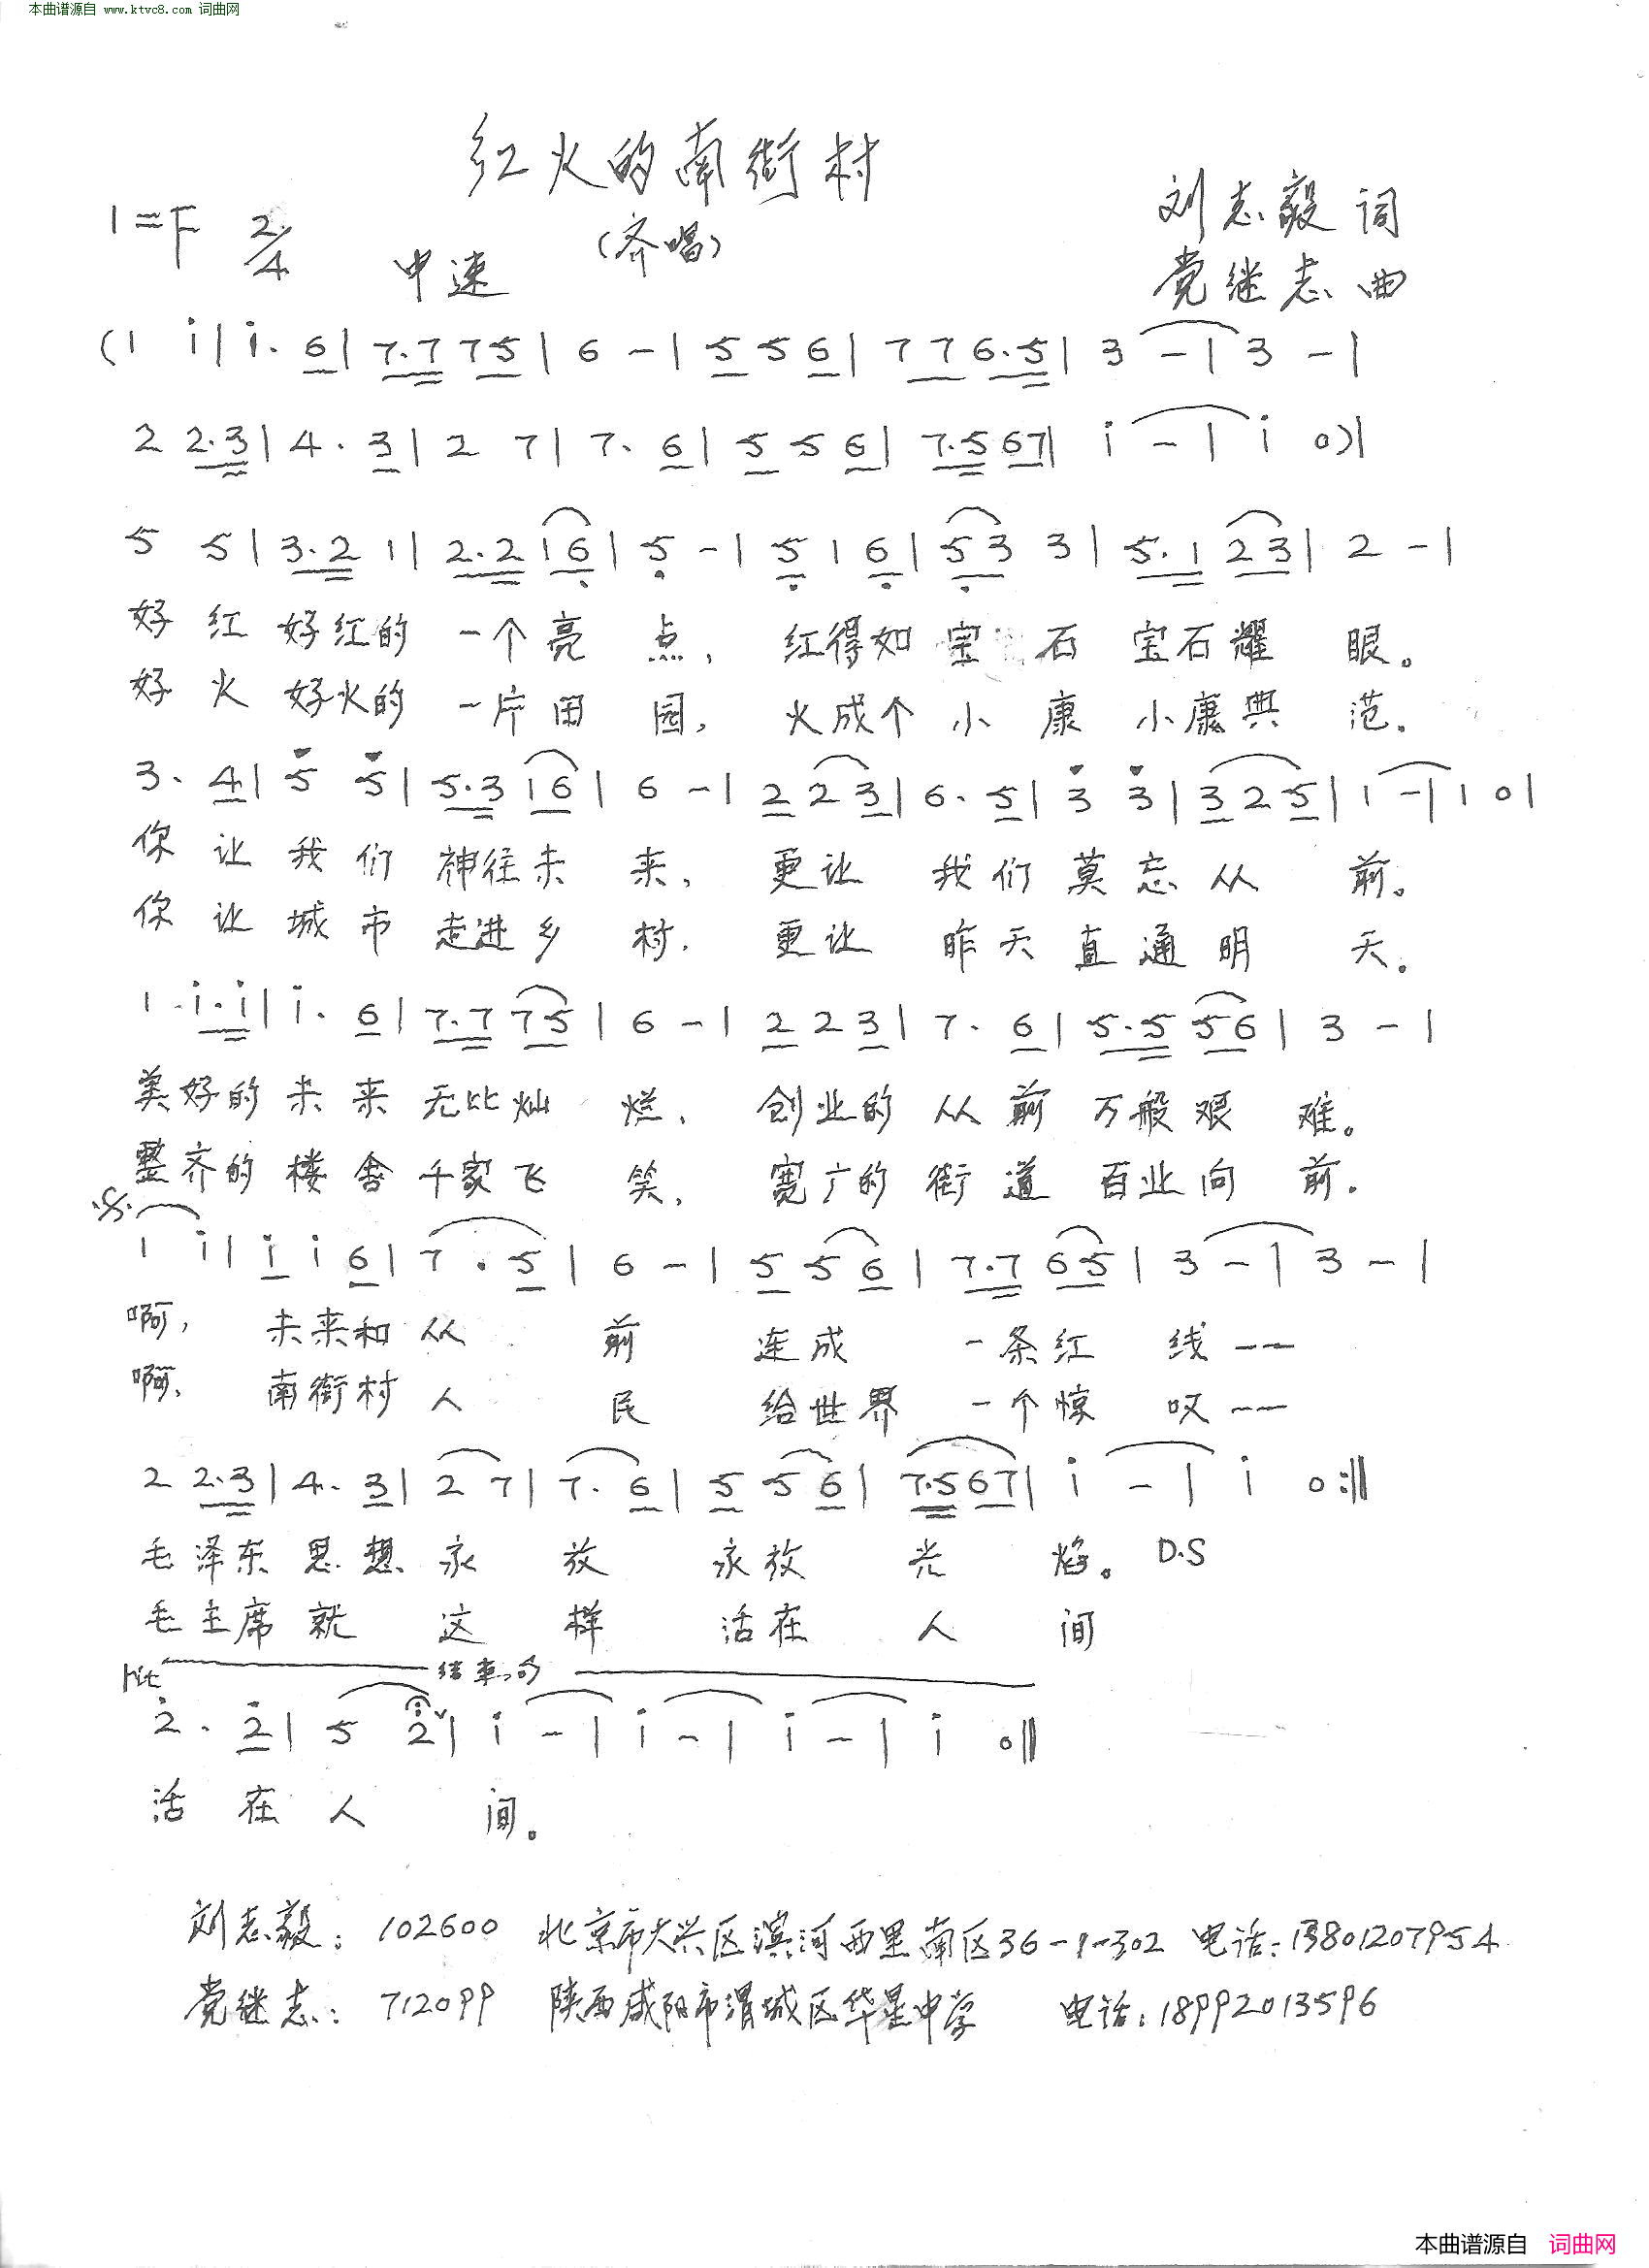 本曲谱源自 www.ktvc8.com 词曲网
红火的南街村
1=F 2/4 中速 (齐唱) 刘志毅 词
党继志 曲
(1 i| i. 6| 7.7 75| 6 -| 5 5 6| 7 7 6.5| 3 -| 3 -|
2 2.3| 4. 3| 2 7| 7. 6| 5 5 6| 7.5 67| i -| i 0)|
5 5| 3.2 1| 2.2 16| 5 -| 5 1 6| 53 3| 5.1 23| 2 -|
好 红 好红的 一个亮 点, 红得如 宝 石 宝石耀 眼。
好 火 好火的 一片田 园, 火成个 小 康 小康典 范.
3. 4| 5 5| 5.3 16| 6 -| 2 2 3| 6. 5| 3 3| 3 2 5| 1 -| 1 0|
你 让 我 们 神往未 来, 更让 我们莫忘从 前。
你 让 城 市 走进乡 村. 更让 昨天直通明 天。
1 i.i| i. 6| 7.7 75| 6 -| 2 2 3| 7. 6| 5.5 56| 3 -|
美好的 未 来 无比灿 烂, 创业的 从 前 万般艰 难。
整齐的 楼 舍 千家飞 笑, 宽广的 街 道 百业向 前.
1 i| i i 6| 7. 5| 6 -| 5 5 6| 7.7 65| 3 -| 3 -|
啊, 未来和从 前 连成 一条红 线——
啊, 南街村人 民 给世界 一个惊 叹——
2 2.3| 4. 3| 2 7| 7. 6| 5 5 6| 7.5 67| i -| i 0:‖
毛泽东 思 想 永 放 永放 光 焰。 D.S
毛主席 就 这 样 活在 人 间
rit 结束句
2. 2| 5 2| i -| i -| i -| i 0‖
活 在 人 间。
刘志毅: 102600 北京市大兴区滨河西里南区36-1-302 电话:13801207954
党继志: 712099 陕西咸阳市渭城区华星中学 电话:18992013596
本曲谱源自 词曲网